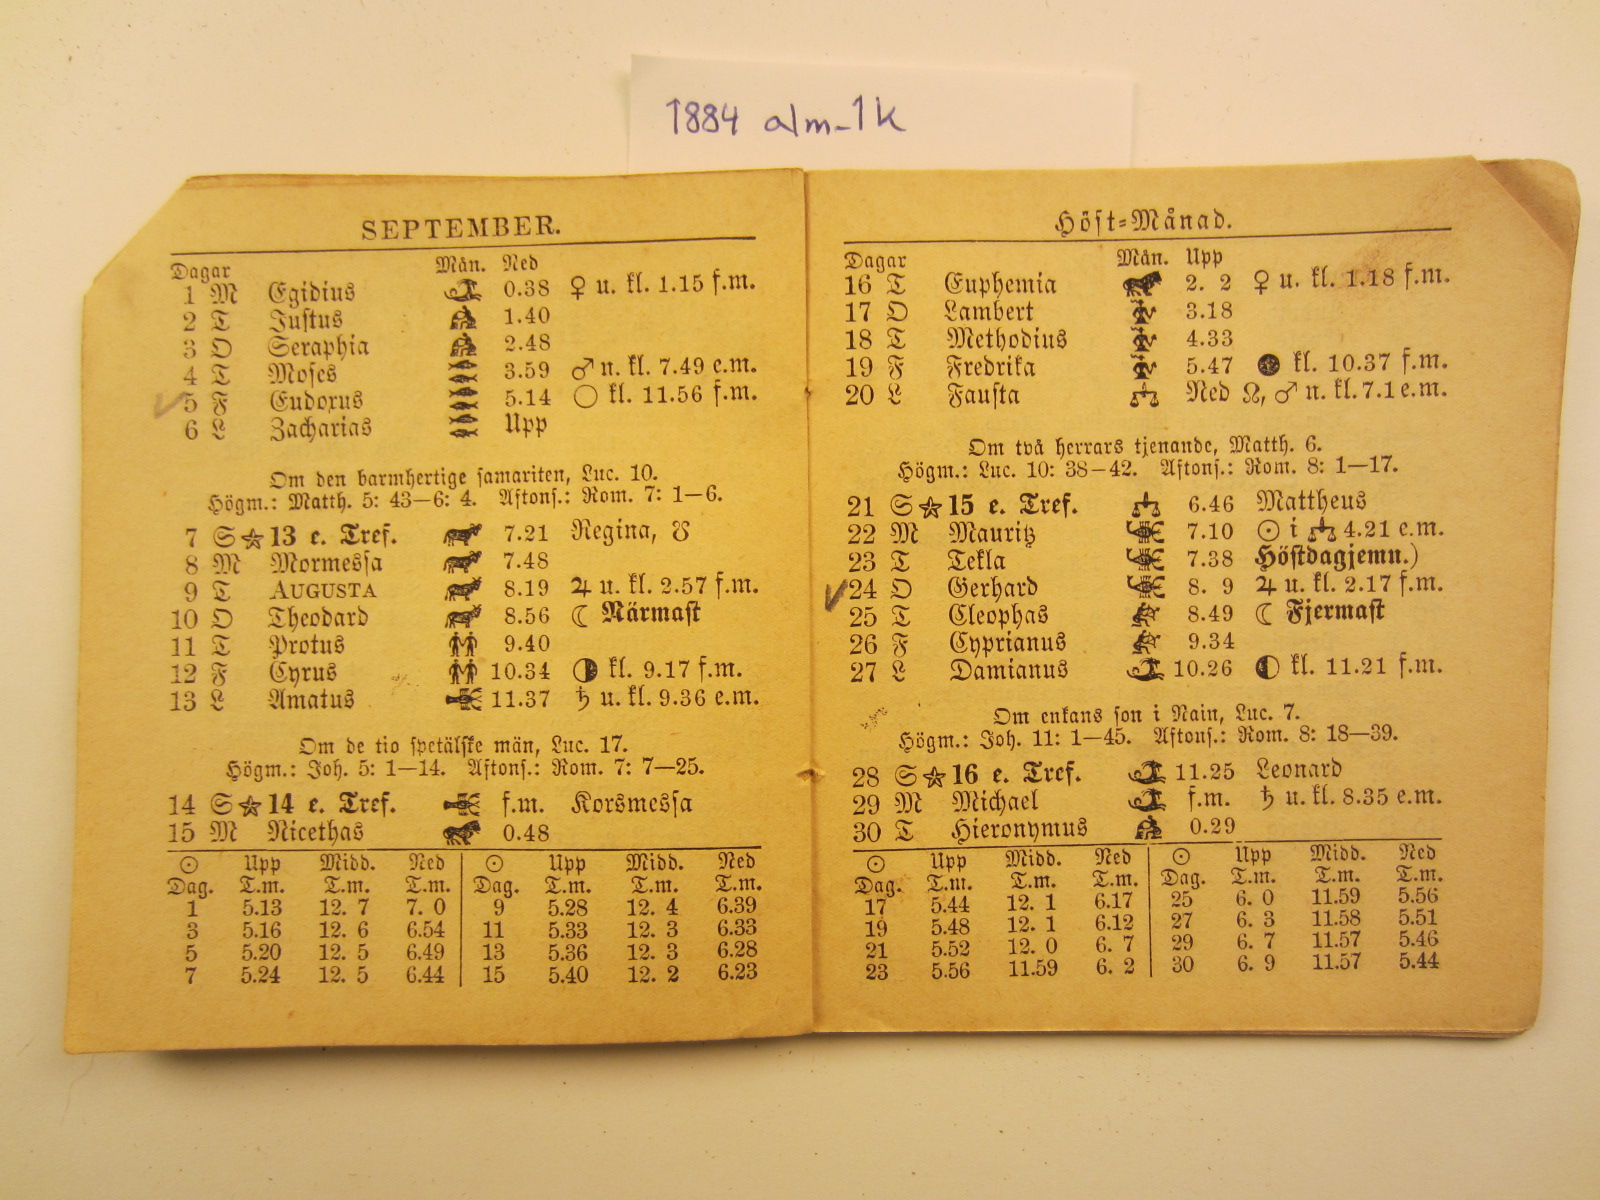 1884 alm-1k
SEPTEMBER.
Dagar Mån. Ned
1 M Egidius 0.38 ♀ u. kl. 1.15 f.m.
2 T Justus 1.40
3 O Seraphia 2.48
4 T Moses 3.59 ♂ n. kl. 7.49 e.m.
5 F Eudoxus 5.14 ○ kl. 11.56 f.m.
6 L Zacharias Upp
Om den barmhertige samariten, Luc. 10.
Högm.: Matth. 5: 43—6: 4. Aftons.: Rom. 7: 1—6.
7 S ☆ 13 e. Tref. 7.21 Regina, ☋
8 M Mormessa 7.48
9 T AUGUSTA 8.19 ♃ u. kl. 2.57 f.m.
10 O Theodard 8.56 ☾ Närmast
11 T Protus 9.40
12 F Cyrus 10.34 ◑ kl. 9.17 f.m.
13 L Amatus 11.37 ♄ u. kl. 9.36 e.m.
Om de tio spetälske män, Luc. 17.
Högm.: Joh. 5: 1—14. Aftons.: Rom. 7: 7—25.
14 S ☆ 14 e. Tref. f.m. Korsmessa
15 M Nicethas 0.48
☉ Upp Midd. Ned ☉ Upp Midd. Ned
Dag. T.m. T.m. T.m. Dag. T.m. T.m. T.m.
1 5.13 12. 7 7. 0 9 5.28 12. 4 6.39
3 5.16 12. 6 6.54 11 5.33 12. 3 6.33
5 5.20 12. 5 6.49 13 5.36 12. 3 6.28
7 5.24 12. 5 6.44 15 5.40 12. 2 6.23
Höst-Månad.
Dagar Mån. Upp
16 T Euphemia 2. 2 ♀ u. kl. 1.18 f.m.
17 O Lambert 3.18
18 T Methodius 4.33
19 F Fredrika 5.47 ● kl. 10.37 f.m.
20 L Fausta Ned ☊, ♂ n. kl. 7.1 e.m.
Om två herrars tjenande, Matth. 6.
Högm.: Luc. 10: 38—42. Aftons.: Rom. 8: 1—17.
21 S ☆ 15 e. Tref. 6.46 Mattheus
22 M Mauritz 7.10 ☉ i ♎ 4.21 e.m.
23 T Tekla 7.38 Höstdagjemn.)
24 O Gerhard 8. 9 ♃ u. kl. 2.17 f.m.
25 T Cleophas 8.49 ☾ Fjermast
26 F Cyprianus 9.34
27 L Damianus 10.26 ◐ kl. 11.21 f.m.
Om enkans son i Nain, Luc. 7.
Högm.: Joh. 11: 1—45. Aftons.: Rom. 8: 18—39.
28 S ☆ 16 e. Tref. 11.25 Leonard
29 M Michael f.m. ♄ u. kl. 8.35 e.m.
30 T Hieronymus 0.29
☉ Upp Midd. Ned ☉ Upp Midd. Ned
Dag. T.m. T.m. T.m. Dag. T.m. T.m. T.m.
17 5.44 12. 1 6.17 25 6. 0 11.59 5.56
19 5.48 12. 1 6.12 27 6. 3 11.58 5.51
21 5.52 12. 0 6. 7 29 6. 7 11.57 5.46
23 5.56 11.59 6. 2 30 6. 9 11.57 5.44